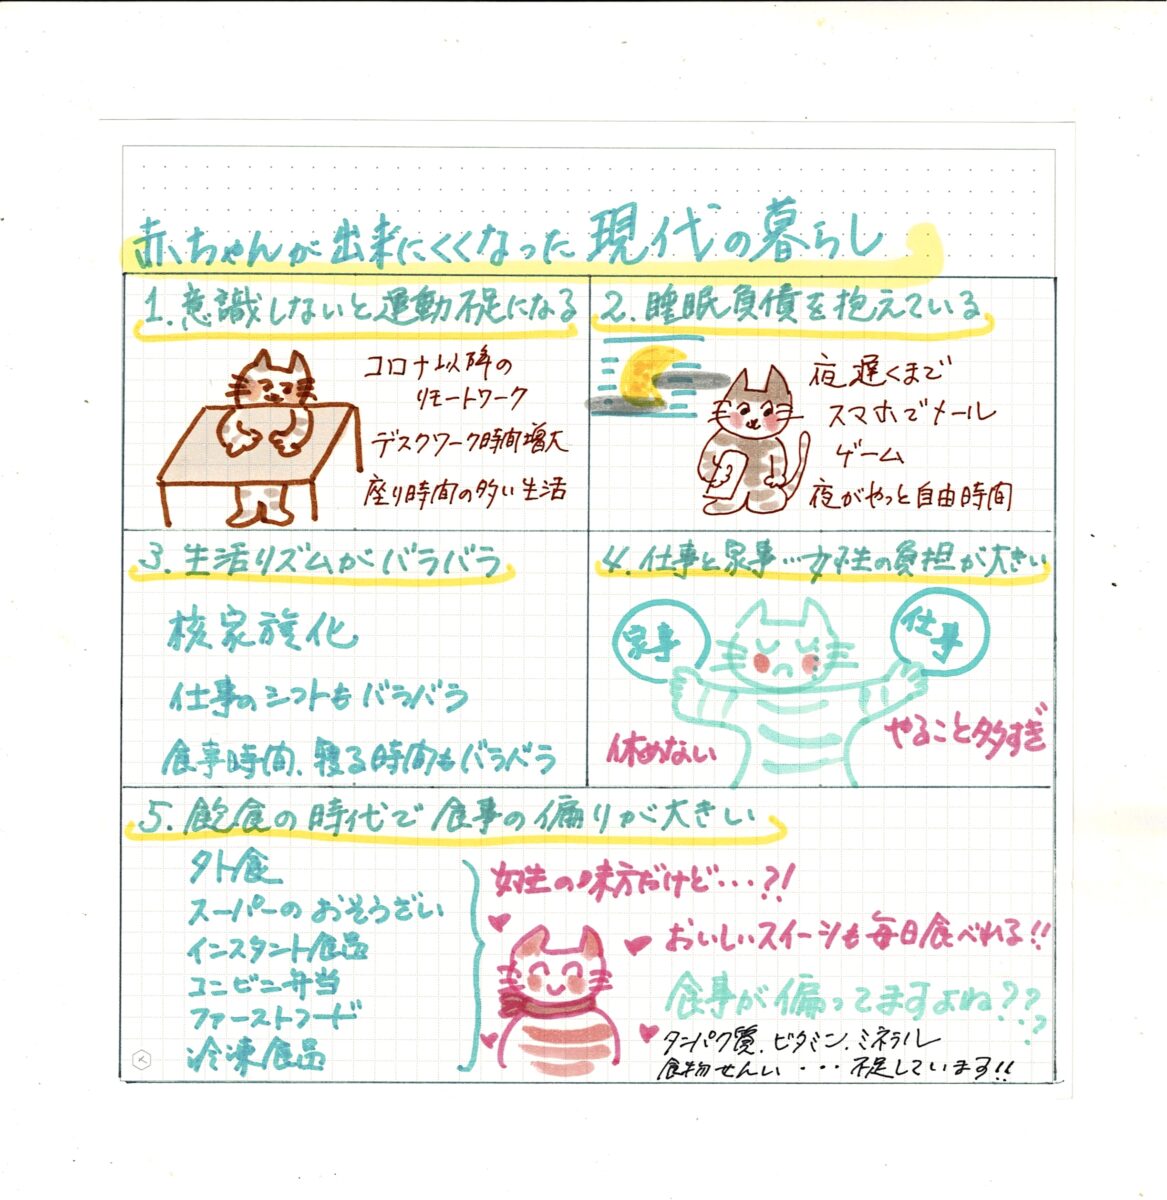 赤ちゃんが出来にくくなった現代の暮らし
1. 意識しないと運動不足になる
コロナ以降の
リモートワーク
デスクワーク時間増大
座り時間の多い生活
2. 睡眠負債を抱えている
夜遅くまで
スマホでメール
ゲーム
夜がやっと自由時間
3. 生活リズムがバラバラ
核家族化
仕事のシフトもバラバラ
食事時間、寝る時間もバラバラ
4. 仕事と家事…女性の負担が大きい
家事
仕事
休めない
やること多すぎ
5. 飽食の時代で食事の偏りが大きい
外食
スーパーのおそうざい
インスタント食品
コンビニ弁当
ファーストフード
冷凍食品
女性の味方だけど・・・?!
おいしいスイーツも毎日食べれる!!
食事が偏ってますよね???
タンパク質、ビタミン、ミネラル
食物せんい・・・不足しています!!